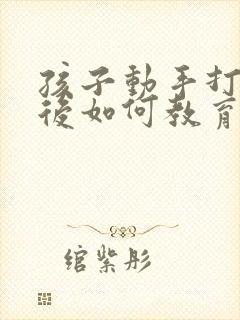 孩子動手打
後如何教育
綰紫彤